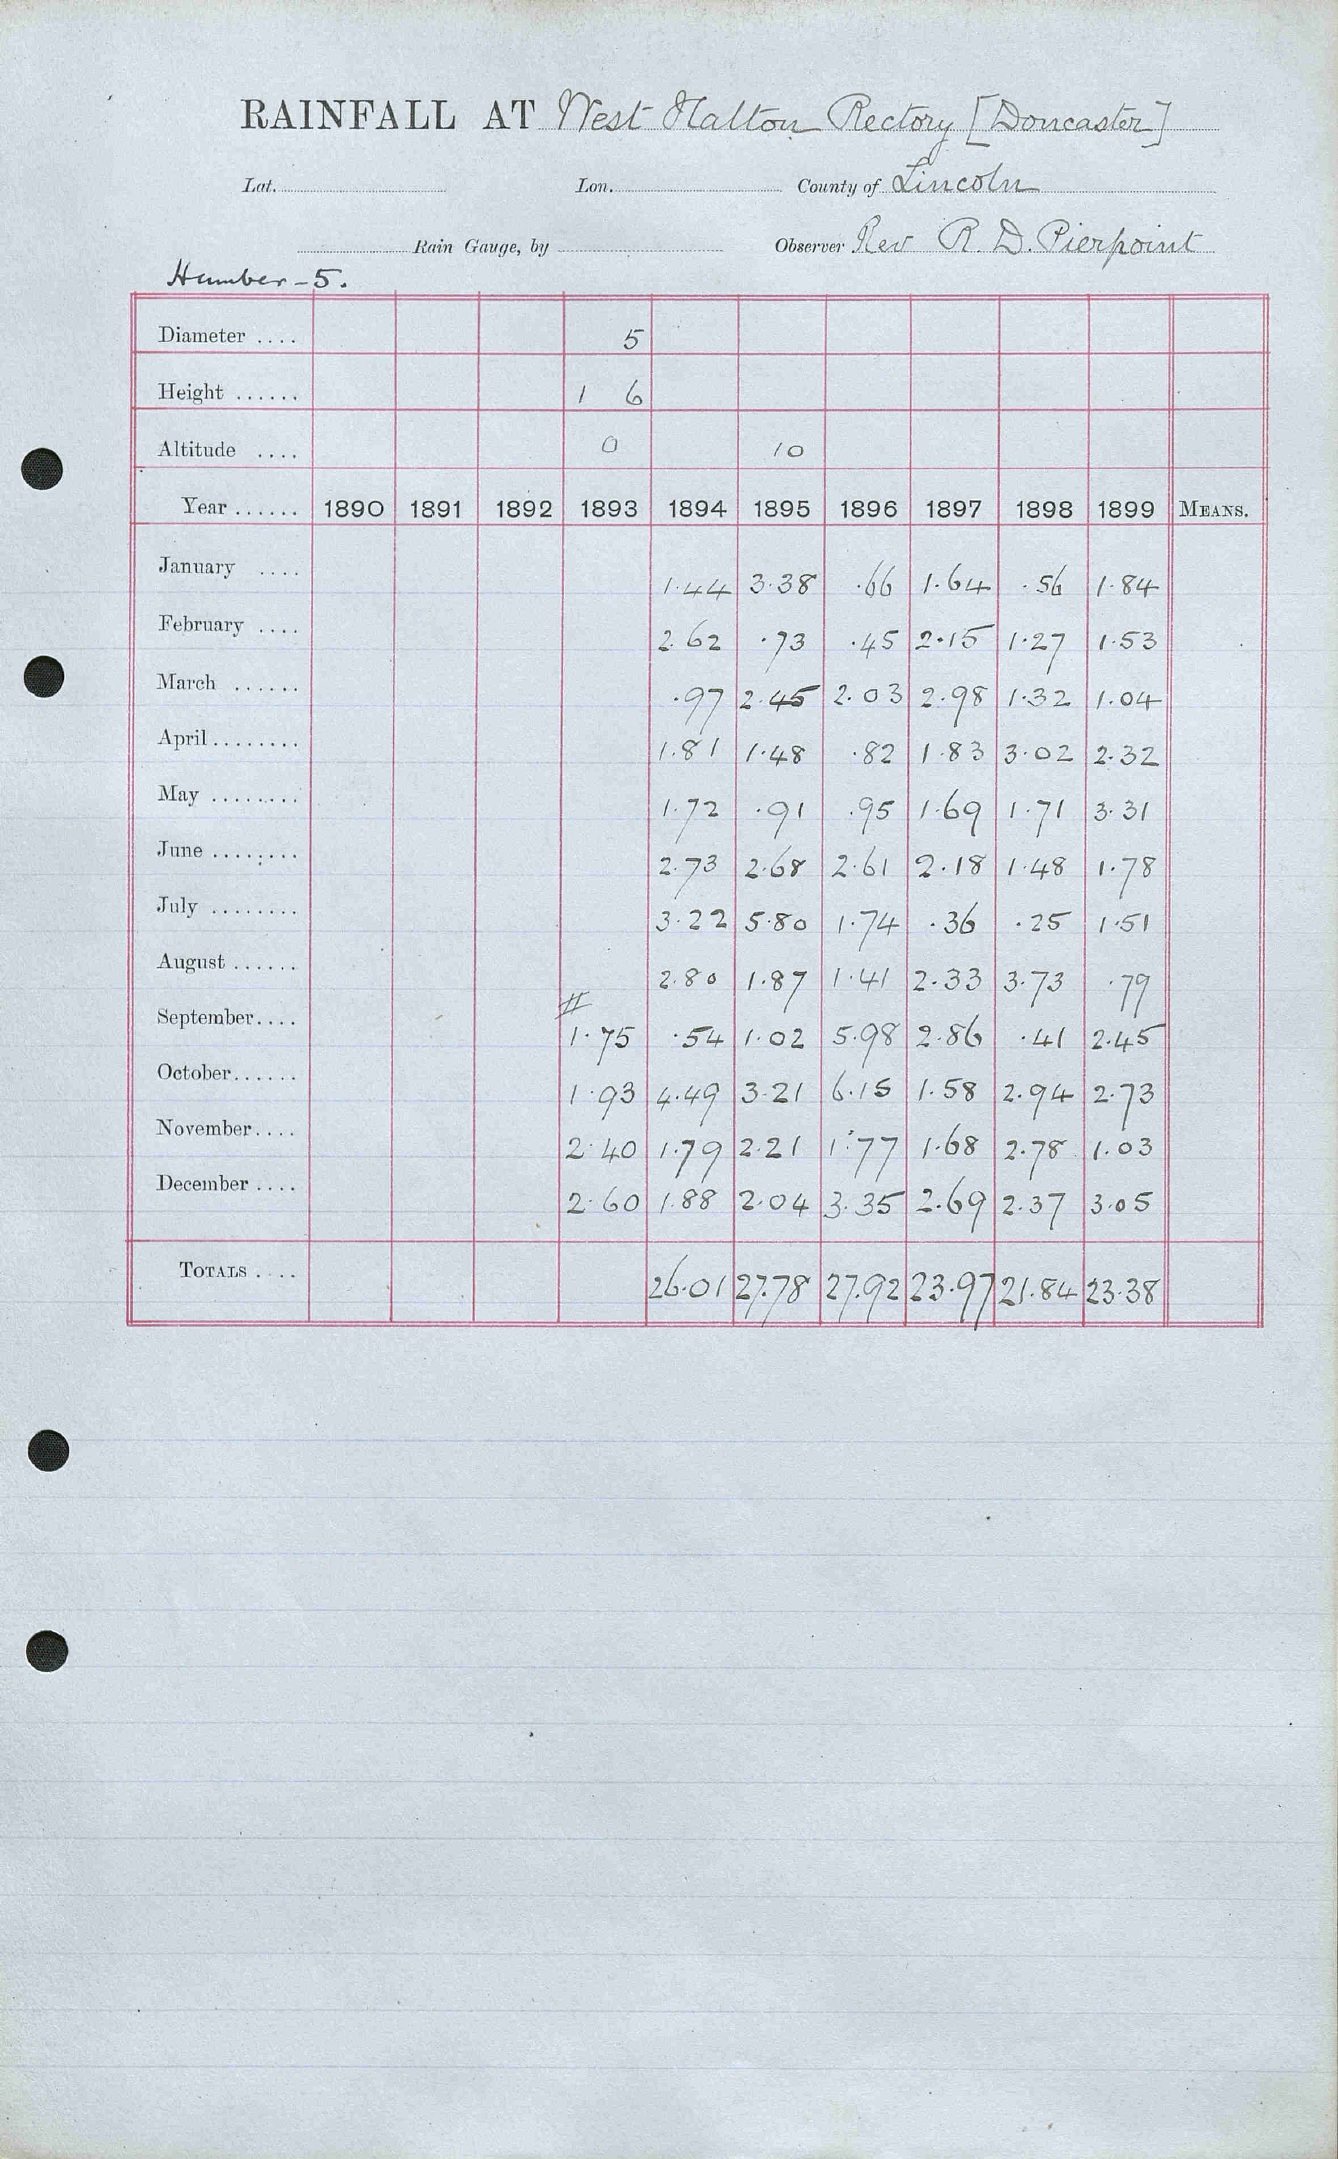 RAINFALL AT West Halton Rectory [Doncaster]
Lat. Lon. County of Lincoln
Rain Gauge, by Observer Rev R. D. Pierpoint
Humber - 5.
Diameter .... 5
Height ...... 1 6
Altitude .... 0 10
Year ...... 1890 1891 1892 1893 1894 1895 1896 1897 1898 1899 MEANS.
January .... 1.44 3.38 .66 1.64 .56 1.84
February .... 2.62 .73 .45 2.15 1.27 1.53
March ...... .97 2.45 2.03 2.98 1.32 1.04
April........ 1.81 1.48 .82 1.83 3.02 2.32
May ........ 1.72 .91 .95 1.69 1.71 3.31
June ........ 2.73 2.68 2.61 2.18 1.48 1.78
July ........ 3.22 5.80 1.74 .36 .25 1.51
August ...... 2.80 1.87 1.41 2.33 3.73 .79
September.... 1.75 .54 1.02 5.98 2.86 .41 2.45
October...... 1.93 4.49 3.21 6.15 1.58 2.94 2.73
November.... 2.40 1.79 2.21 1.77 1.68 2.78 1.03
December .... 2.60 1.88 2.04 3.35 2.69 2.37 3.05
TOTALS .... 26.01 27.78 27.92 23.97 21.84 23.38